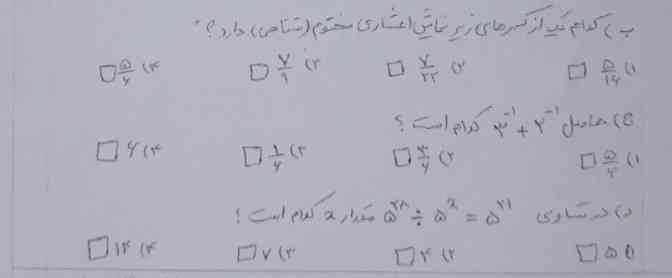 ب) کدام یک از کسرهای زیر نمایش اعشاری مختوم (متناهی) دارد؟
۱) ۵/۱۶ □ ۲) ۷/۲۲ □ ۳) ۷/۹ □ ۴) ۵/۶ □
ج) حاصل ۲⁻¹ + ۳⁻¹ کدام است؟
۱) ۵/۶ □ ۲) ۳/۶ □ ۳) ۱/۶ □ ۴) ۶ □
د) در تساوی ۵²⁸ ÷ ۵ˣ = ۵²¹ مقدار x کدام است؟
۱) ۵ □ ۲) ۴ □ ۳) ۷ □ ۴) ۱۴ □